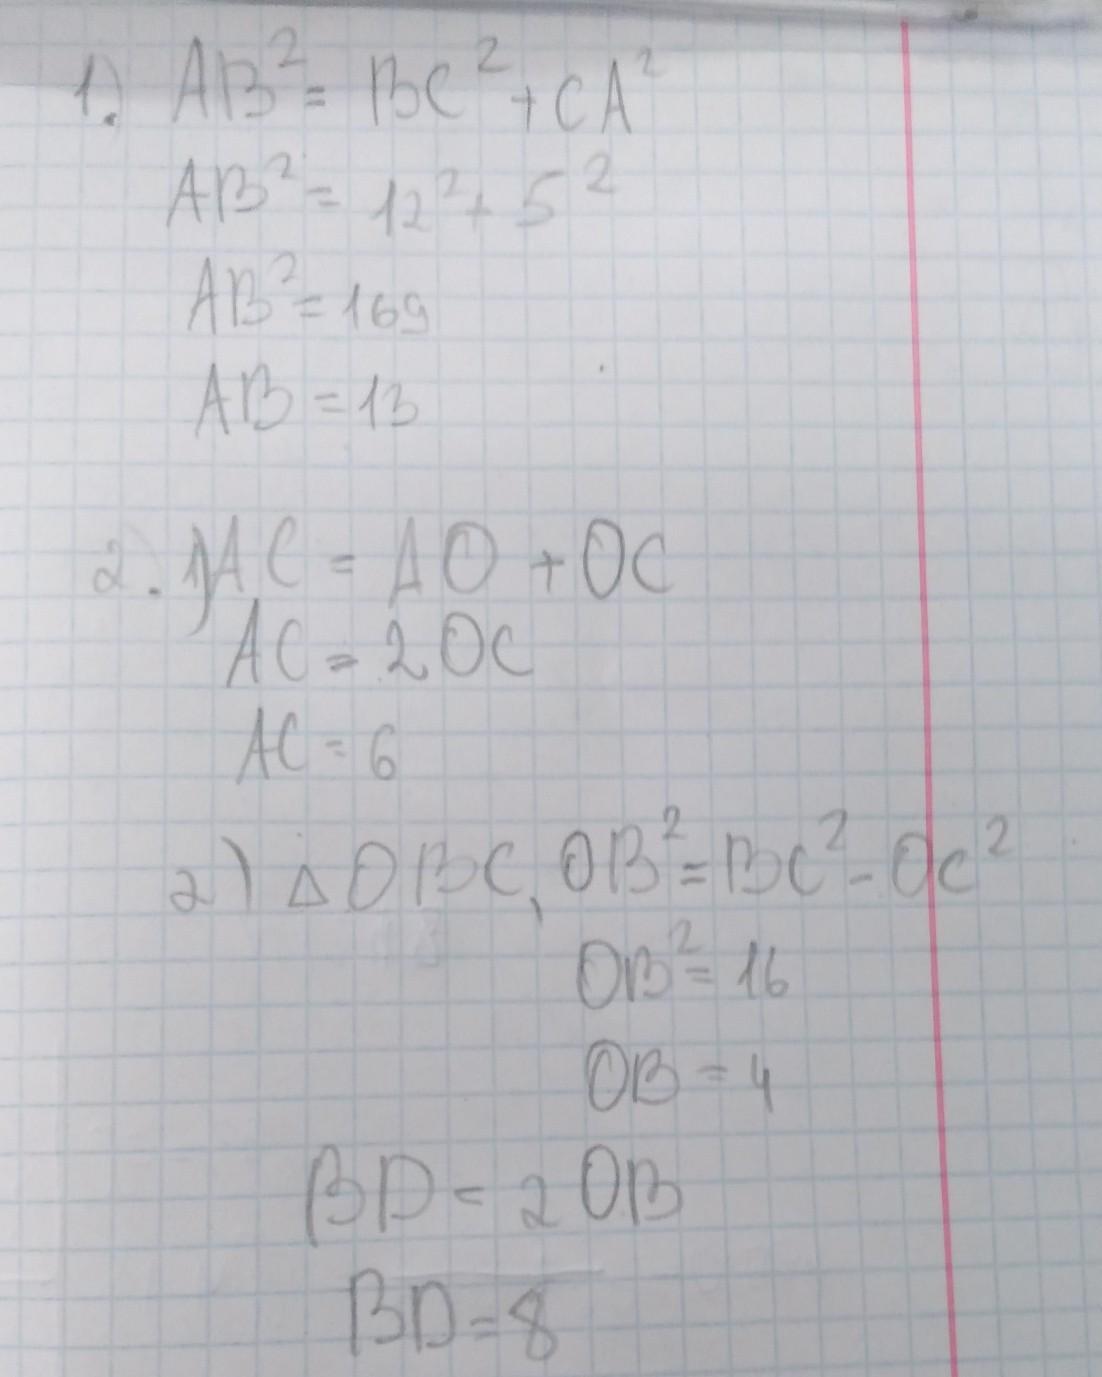 1). AB² = BC² + CA²
AB² = 12² + 5²
AB² = 169
AB = 13
2. 1) AC = AO + OC
AC = 2OC
AC = 6
2) △OBC, OB² = BC² - OC²
OB² = 16
OB = 4
BD = 2OB
BD = 8